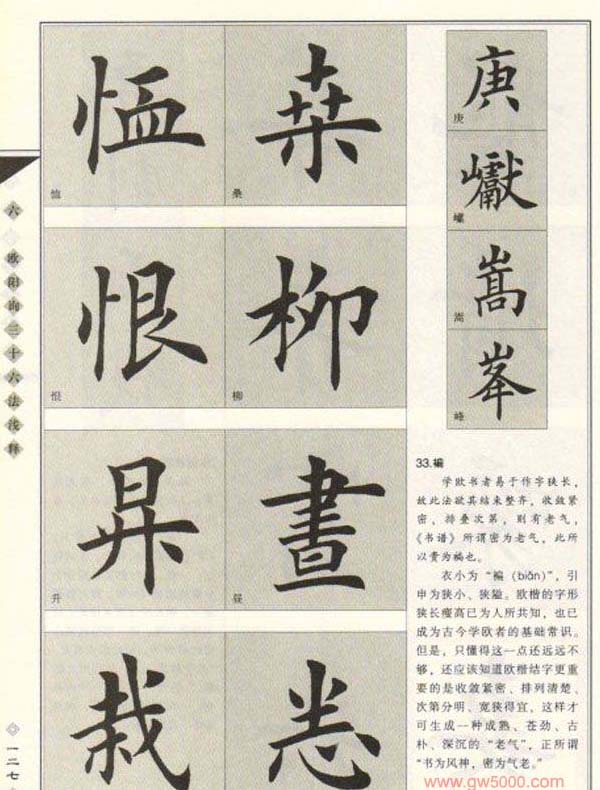 六 欧阳询三十六法浅释
一二七
恤 桑
恤 桑
恨 柳
恨 柳
昇 晝
升 昼
栽
庚
庚
巘
嵩
嵩
峯
峰
33.褊
学欧书者易于作字狭长，
故此法欲其结束整齐，收敛紧
密，排叠次第，则有老气，
《书谱》所谓密为老气，此所
以贵为褊也。
衣小为“褊（biǎn）”，引
申为狭小、狭隘。欧楷的字形
狭长瘦高已为人所共知，也已
成为古今学欧者的基础常识。
但是，只懂得这一点还远远不
够，还应该知道欧楷结字更重
要的是收敛紧密、排列清楚、
次第分明、宽狭得宜，这样才
可生成一种成熟、苍劲、古
朴、深沉的“老气”，正所谓
“书为风神，密为气老。”
www.gw5000.com